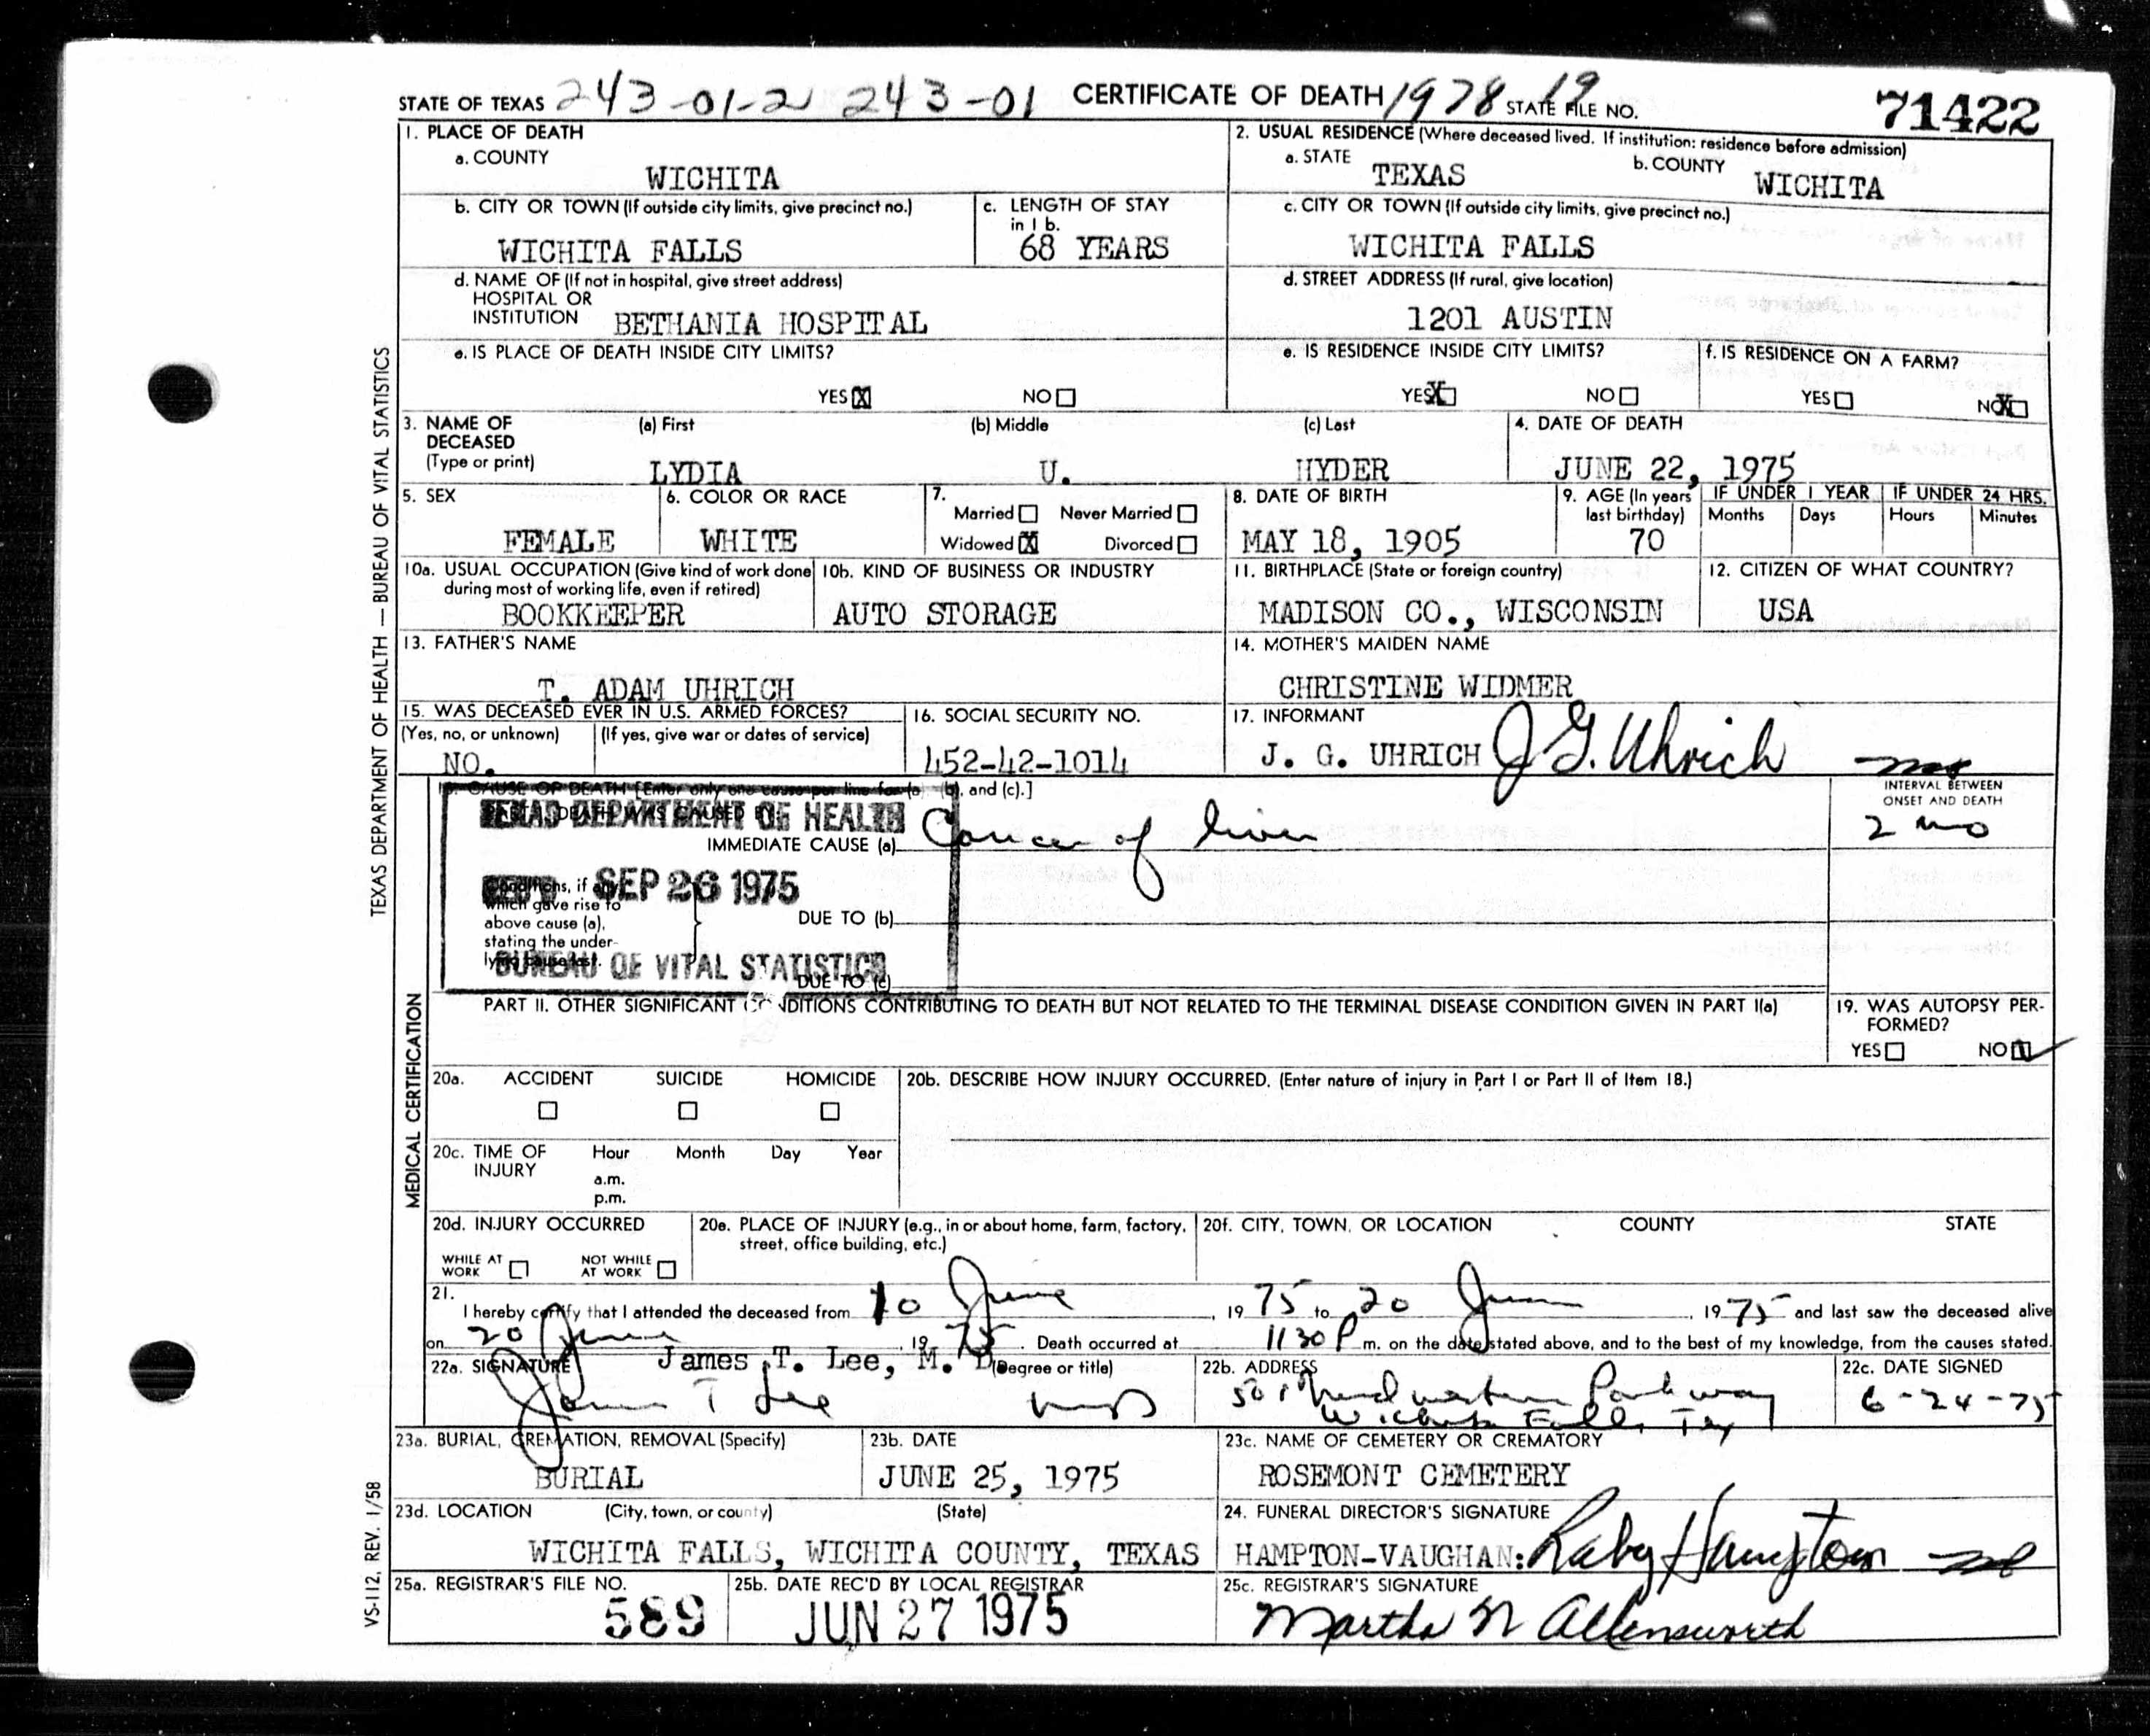 STATE OF TEXAS 243-01-2 243-01 CERTIFICATE OF DEATH 1978 STATE FILE NO. 19 71422
1. PLACE OF DEATH
a. COUNTY
WICHITA
2. USUAL RESIDENCE (Where deceased lived. If institution: residence before admission)
a. STATE
TEXAS
b. COUNTY
WICHITA
b. CITY OR TOWN (If outside city limits, give precinct no.)
WICHITA FALLS
c. LENGTH OF STAY
in 1 b.
68 YEARS
c. CITY OR TOWN (If outside city limits, give precinct no.)
WICHITA FALLS
d. NAME OF (If not in hospital, give street address)
HOSPITAL OR
INSTITUTION BETHANIA HOSPITAL
d. STREET ADDRESS (If rural, give location)
1201 AUSTIN
e. IS PLACE OF DEATH INSIDE CITY LIMITS?
YES X NO
e. IS RESIDENCE INSIDE CITY LIMITS?
YES X NO
f. IS RESIDENCE ON A FARM?
YES NO X
3. NAME OF
DECEASED
(Type or print)
(a) First
LYDIA
(b) Middle
U.
(c) Last
HYDER
4. DATE OF DEATH
JUNE 22, 1975
5. SEX
FEMALE
6. COLOR OR RACE
WHITE
7.
Married Never Married
Widowed X Divorced
8. DATE OF BIRTH
MAY 18, 1905
9. AGE (In years
last birthday)
70
IF UNDER 1 YEAR
Months Days
IF UNDER 24 HRS.
Hours Minutes
10a. USUAL OCCUPATION (Give kind of work done
during most of working life, even if retired)
BOOKKEEPER
10b. KIND OF BUSINESS OR INDUSTRY
AUTO STORAGE
11. BIRTHPLACE (State or foreign country)
MADISON CO., WISCONSIN
12. CITIZEN OF WHAT COUNTRY?
USA
13. FATHER'S NAME
T. ADAM UHRICH
14. MOTHER'S MAIDEN NAME
CHRISTINE WIDMER
15. WAS DECEASED EVER IN U.S. ARMED FORCES?
(Yes, no, or unknown) (If yes, give war or dates of service)
NO.
16. SOCIAL SECURITY NO.
452-42-1014
17. INFORMANT
J. G. UHRICH J G. Uhrich
18. CAUSE OF DEATH [Enter only one cause per line for (a), (b), and (c).]
TEXAS DEPARTMENT OF HEALTH
DEATH WAS CAUSED BY:
IMMEDIATE CAUSE (a) Cancer of liver
INTERVAL BETWEEN
ONSET AND DEATH
2 mo
SEP 26 1975
Conditions, if any
which gave rise to
above cause (a),
stating the under-
lying cause last.
DUE TO (b)
BUREAU OF VITAL STATISTICS
DUE TO (c)
PART II. OTHER SIGNIFICANT CONDITIONS CONTRIBUTING TO DEATH BUT NOT RELATED TO THE TERMINAL DISEASE CONDITION GIVEN IN PART I(a)
19. WAS AUTOPSY PER-
FORMED?
YES NO
20a. ACCIDENT SUICIDE HOMICIDE
20b. DESCRIBE HOW INJURY OCCURRED. (Enter nature of injury in Part I or Part II of Item 18.)
20c. TIME OF
INJURY
Hour Month Day Year
a.m.
p.m.
20d. INJURY OCCURRED
WHILE AT
WORK
NOT WHILE
AT WORK
20e. PLACE OF INJURY (e.g., in or about home, farm, factory,
street, office building, etc.)
20f. CITY, TOWN, OR LOCATION COUNTY STATE
21.
I hereby certify that I attended the deceased from 10 June, 1975 to 20 June, 1975 and last saw the deceased alive
on 20 June, 1975. Death occurred at 1130 P m. on the date stated above, and to the best of my knowledge, from the causes stated.
22a. SIGNATURE James T. Lee, M. D. (Degree or title)
James T Lee MD
22b. ADDRESS
501 Midwestern Parkway
Wichita Falls, Tex
22c. DATE SIGNED
6-24-75
23a. BURIAL, CREMATION, REMOVAL (Specify)
BURIAL
23b. DATE
JUNE 25, 1975
23c. NAME OF CEMETERY OR CREMATORY
ROSEMONT CEMETERY
23d. LOCATION (City, town, or county) (State)
WICHITA FALLS, WICHITA COUNTY, TEXAS
24. FUNERAL DIRECTOR'S SIGNATURE
HAMPTON-VAUGHAN: Raby Hampton
25a. REGISTRAR'S FILE NO.
589
25b. DATE REC'D BY LOCAL REGISTRAR
JUN 27 1975
25c. REGISTRAR'S SIGNATURE
Martha N Allensworth
TEXAS DEPARTMENT OF HEALTH — BUREAU OF VITAL STATISTICS
MEDICAL CERTIFICATION
VS-112, REV. 1/58